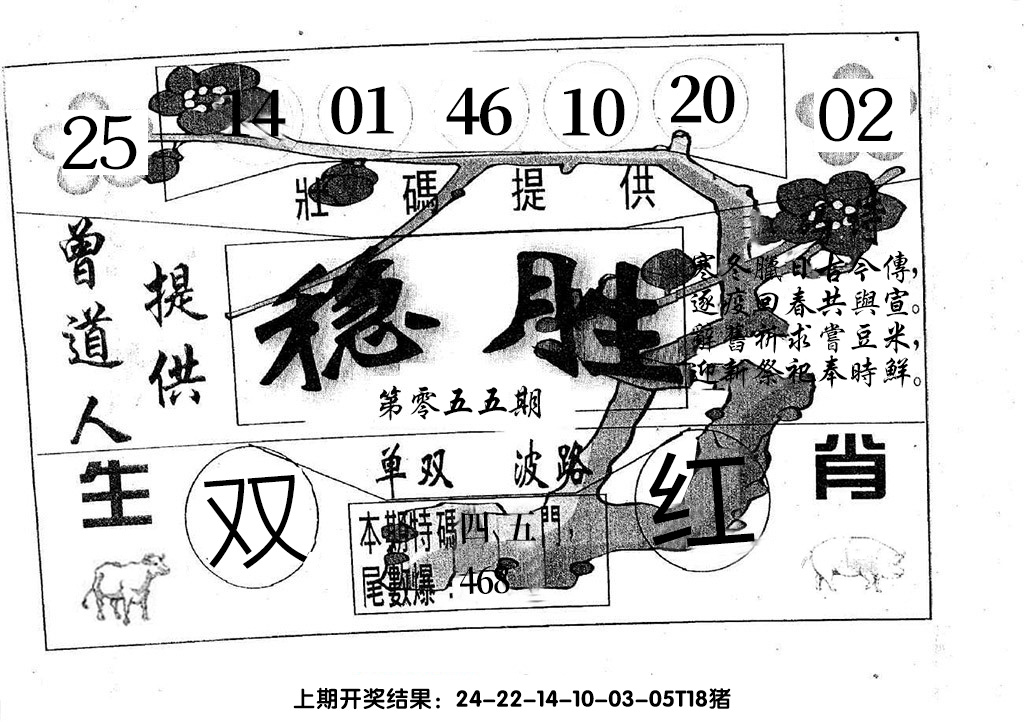 25 14 01 46 10 20 02
壯碼提供
曾道人
提供
稳胜
第零五五期
寒冬臘日古今傳，
逐疫回春共與宣。
辭舊祈求嘗豆米，
迎新祭祀奉時鮮。
单双 波路
生肖
双
红
本期特碼四、五門，
尾數爆：468
上期开奖结果：24-22-14-10-03-05T18猪